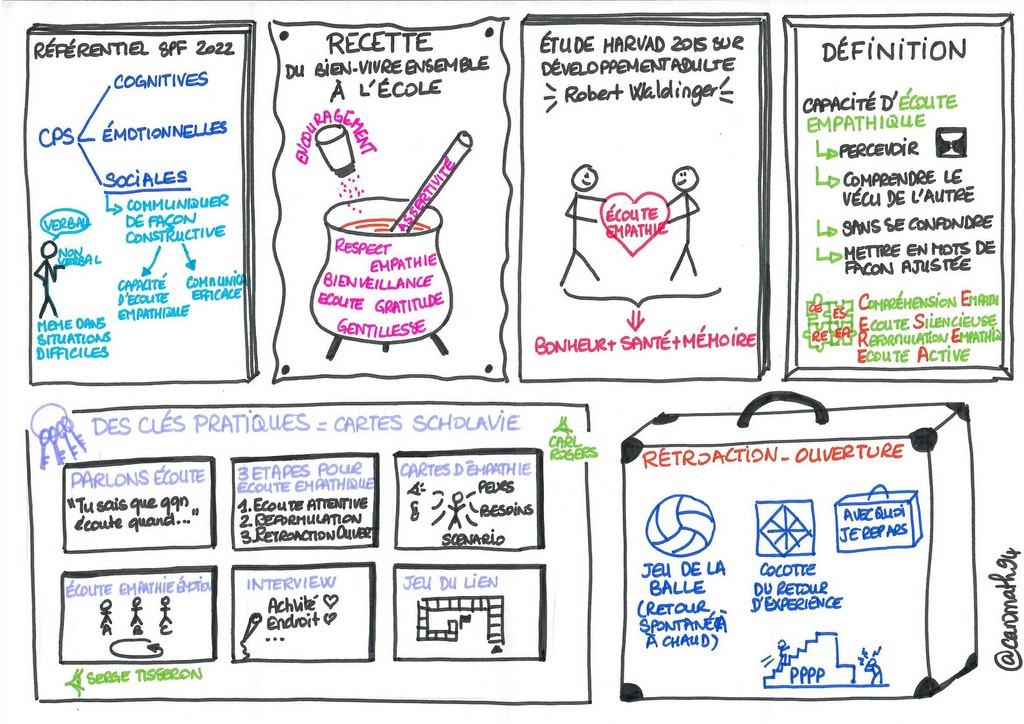 RÉFÉRENTIEL SPF 2022
COGNITIVES
CPS
ÉMOTIONNELLES
SOCIALES
COMMUNIQUER
DE FAÇON
CONSTRUCTIVE
VERBAL
NON
VERBAL
CAPACITÉ
D'ÉCOUTE
EMPATHIQUE
COMMUNIC
EFFICACE
MEME DANS
SITUATIONS
DIFFICILES
RECETTE
DU BIEN-VIVRE ENSEMBLE
À L'ÉCOLE
ENCOURAGEMENT
ASSERTIVITÉ
RESPECT
EMPATHIE
BIENVEILLANCE
ECOUTE GRATITUDE
GENTILLESSE
ÉTUDE HARVAD 2015 SUR
DÉVELOPPEMENT ADULTE
Robert Waldinger
ÉCOUTE
EMPATHIE
BONHEUR + SANTÉ + MÉMOIRE
DÉFINITION
CAPACITÉ D'ÉCOUTE
EMPATHIQUE
PERCEVOIR
COMPRENDRE LE
VÉCU DE L'AUTRE
SANS SE CONFONDRE
METTRE EN MOTS DE
FAÇON AJUSTÉE
CE ES
RE EA
COMPRÉHENSION EMPATH
ECOUTE SILENCIEUSE
REFORMULATION EMPATHIQ
ECOUTE ACTIVE
DES CLÉS PRATIQUES = CARTES SCHOLAVIE
CARL
ROGERS
PARLONS ÉCOUTE
"Tu sais que qqn
écoute quand..."
3 ETAPES POUR
ECOUTE EMPATHIQUE
1. ECOUTE ATTENTIVE
2. REFORMULATION
3. RETROACTION OUVERT
CARTES D'EMPATHIE
PEURS
BESOINS
SCENARIO
ÉCOUTE EMPATHIE ÉMOTION
A B C
INTERVIEW
Activité ♡
Endroit ♡
...
JEU DU LIEN
SERGE TISSERON
RÉTROACTION - OUVERTURE
JEU DE LA
BALLE
(RETOUR
SPONTANÉ
À CHAUD)
COCOTTE
DU RETOUR
D'EXPERIENCE
AVEC QUOI
JE REPARS
PPPP
@caromath94